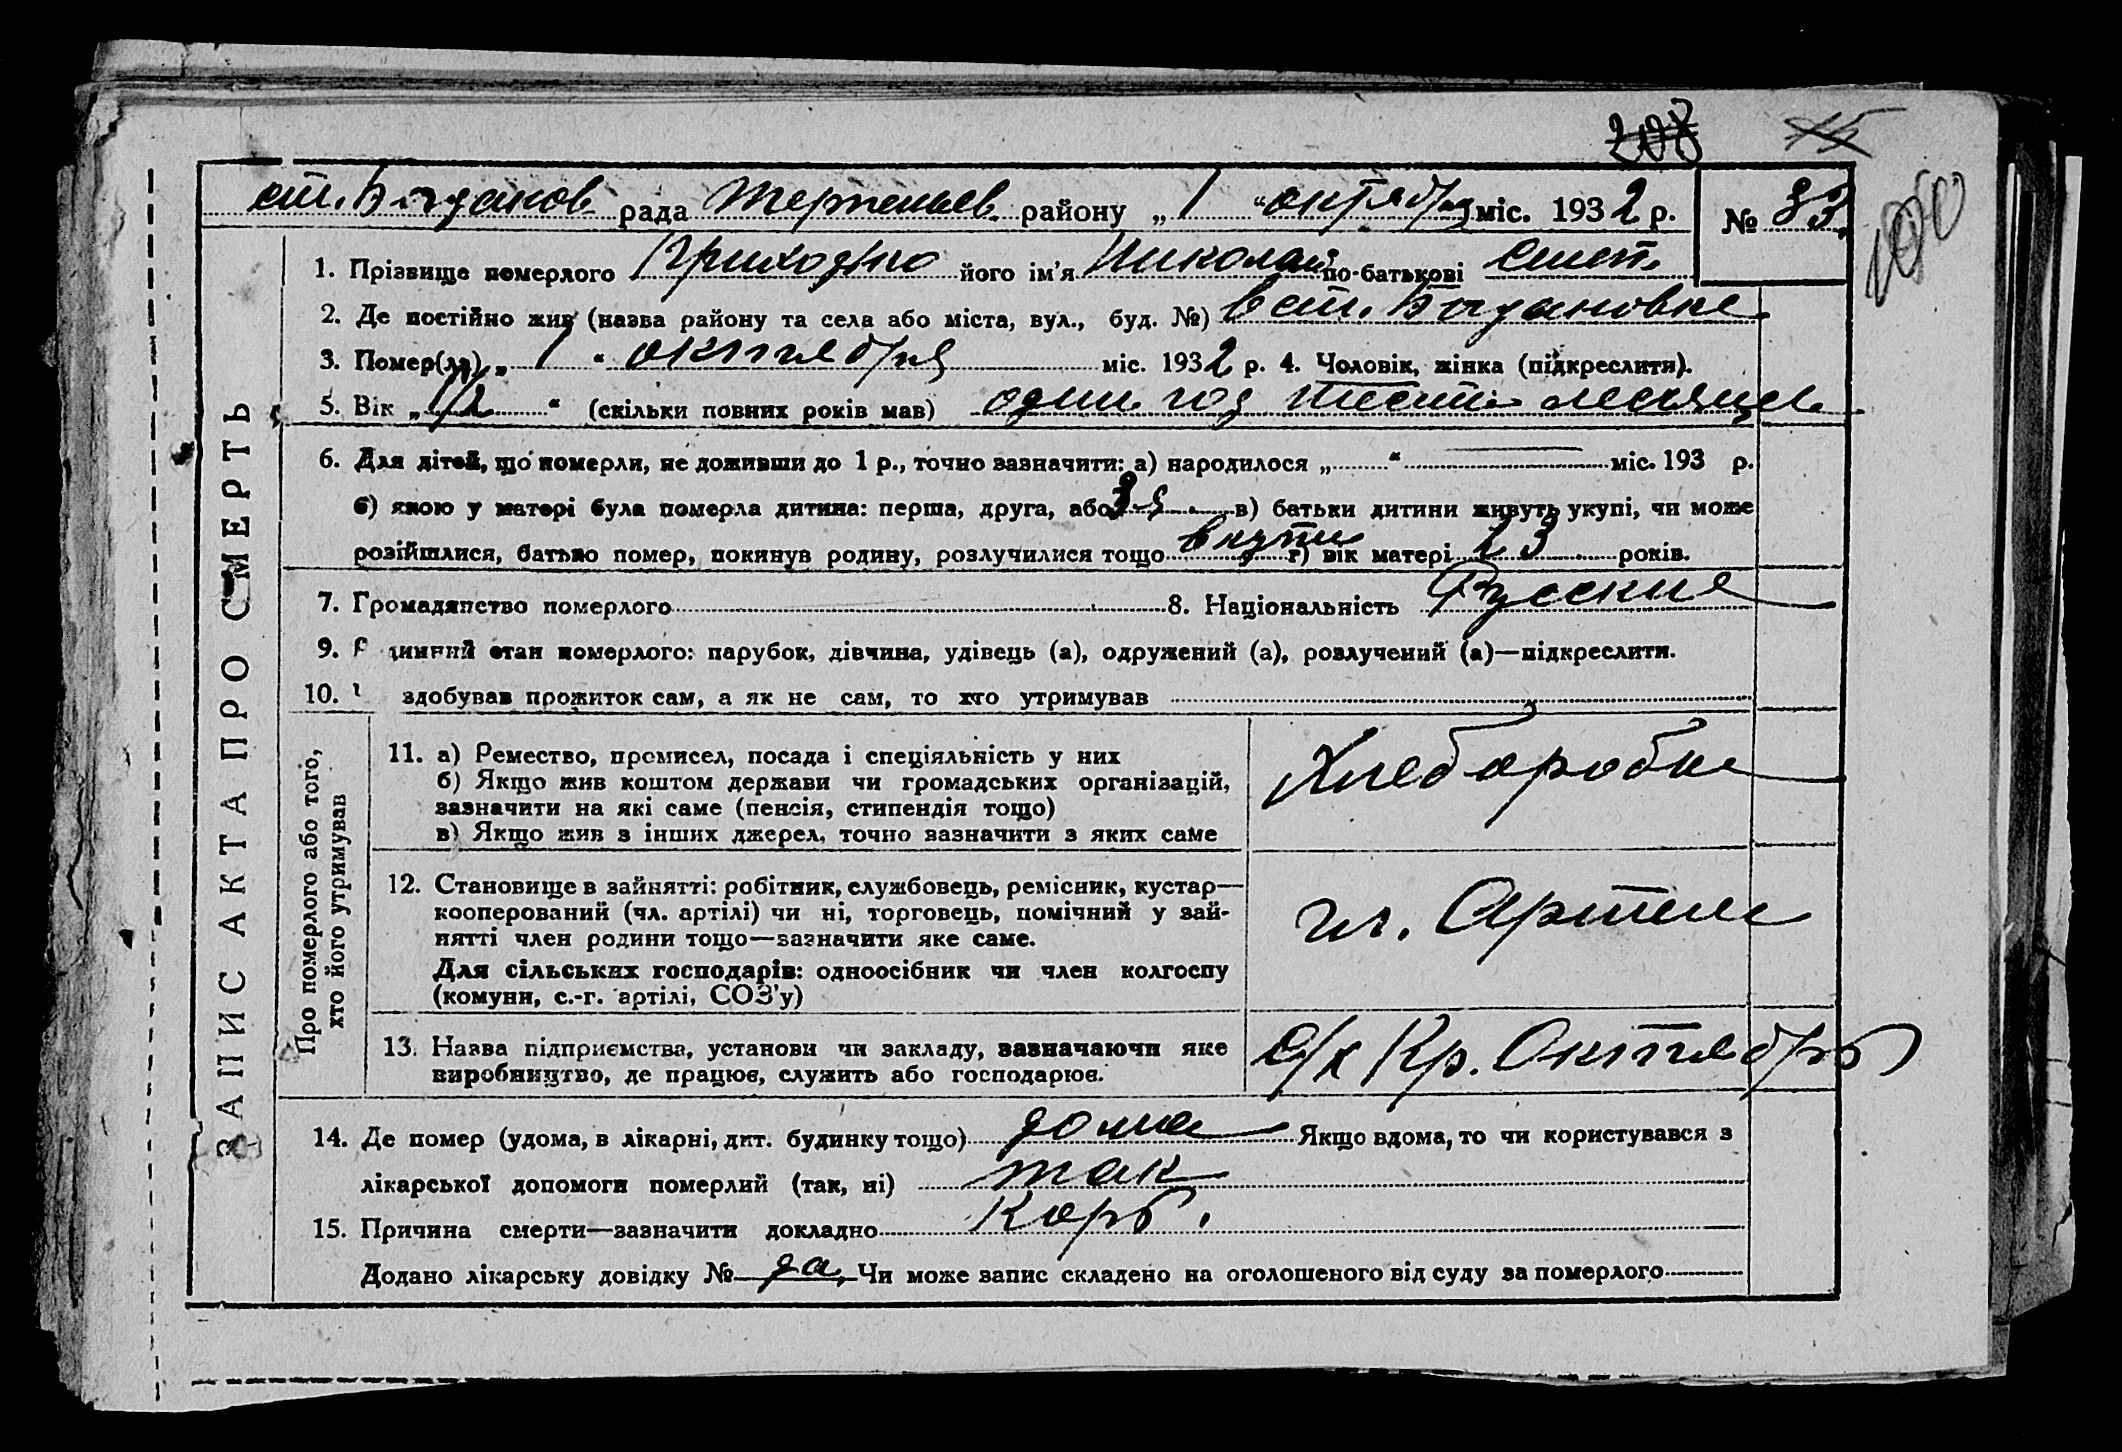 208 15
ст. Богданов. рада Терпеньев. району „ 1 “ октября міс. 1932 р. № 83
1000
ЗАПИС АКТА ПРО СМЕРТЬ
1. Прізвище померлого Приходько його ім'я Николай по-батькові
2. Де постійно жив (назва району та села або міста, вул., буд. №) в ст. Богдановке
3. Помер(ла) „ 1 “ октября міс. 1932 р. 4. Чоловік, жінка (підкреслити).
5. Вік „ 1/2 “ (скільки повних років мав) один год шесть месяцев
6. Для дітей, що померли, не доживши до 1 р., точно зазначити: а) народилося „ “ міс. 193 р.
б) якою у матері була померла дитина: перша, друга, або 3-я в) батьки дитини живуть укупі, чи може
розійшлися, батько помер, покинув родину, розлучилися тощо вкупи г) вік матері 23 років.
7. Громадянство померлого 8. Національність Русские
9. Р динний стан померлого: парубок, дівчина, удівець (а), одружений (а), розлучений (а)—підкреслити.
10. здобував прожиток сам, а як не сам, то хто утримував
Про померлого або того,
хто його утримував
11. а) Ремество, промисел, посада і спеціяльність у них
б) Якщо жив коштом держави чи громадських організацій,
зазначити на які саме (пенсія, стипендія тощо)
в) Якщо жив з інших джерел, точно зазначити з яких саме
Хлеборобы
12. Становище в зайнятті: робітник, службовець, ремісник, кустар—
кооперований (чл. артілі) чи ні, торговець, помічний у зай-
нятті член родини тощо—зазначити яке саме.
Для сільських господарів: одноосібник чи член колгоспу
(комуни, с.-г. артілі, СОЗ'у)
чл. Артели
13. Назва підприємства, установи чи закладу, зазначаючи яке
виробництво, де працює, служить або господарює.
с/х Кр. Октябрь
14. Де помер (удома, в лікарні, дит. будинку тощо) дома Якщо вдома, то чи користувався з
лікарської допомоги померлий (так, ні) так
15. Причина смерти—зазначити докладно Корь.
Додано лікарську довідку № да. Чи може запис складено на оголошеного від суду за померлого